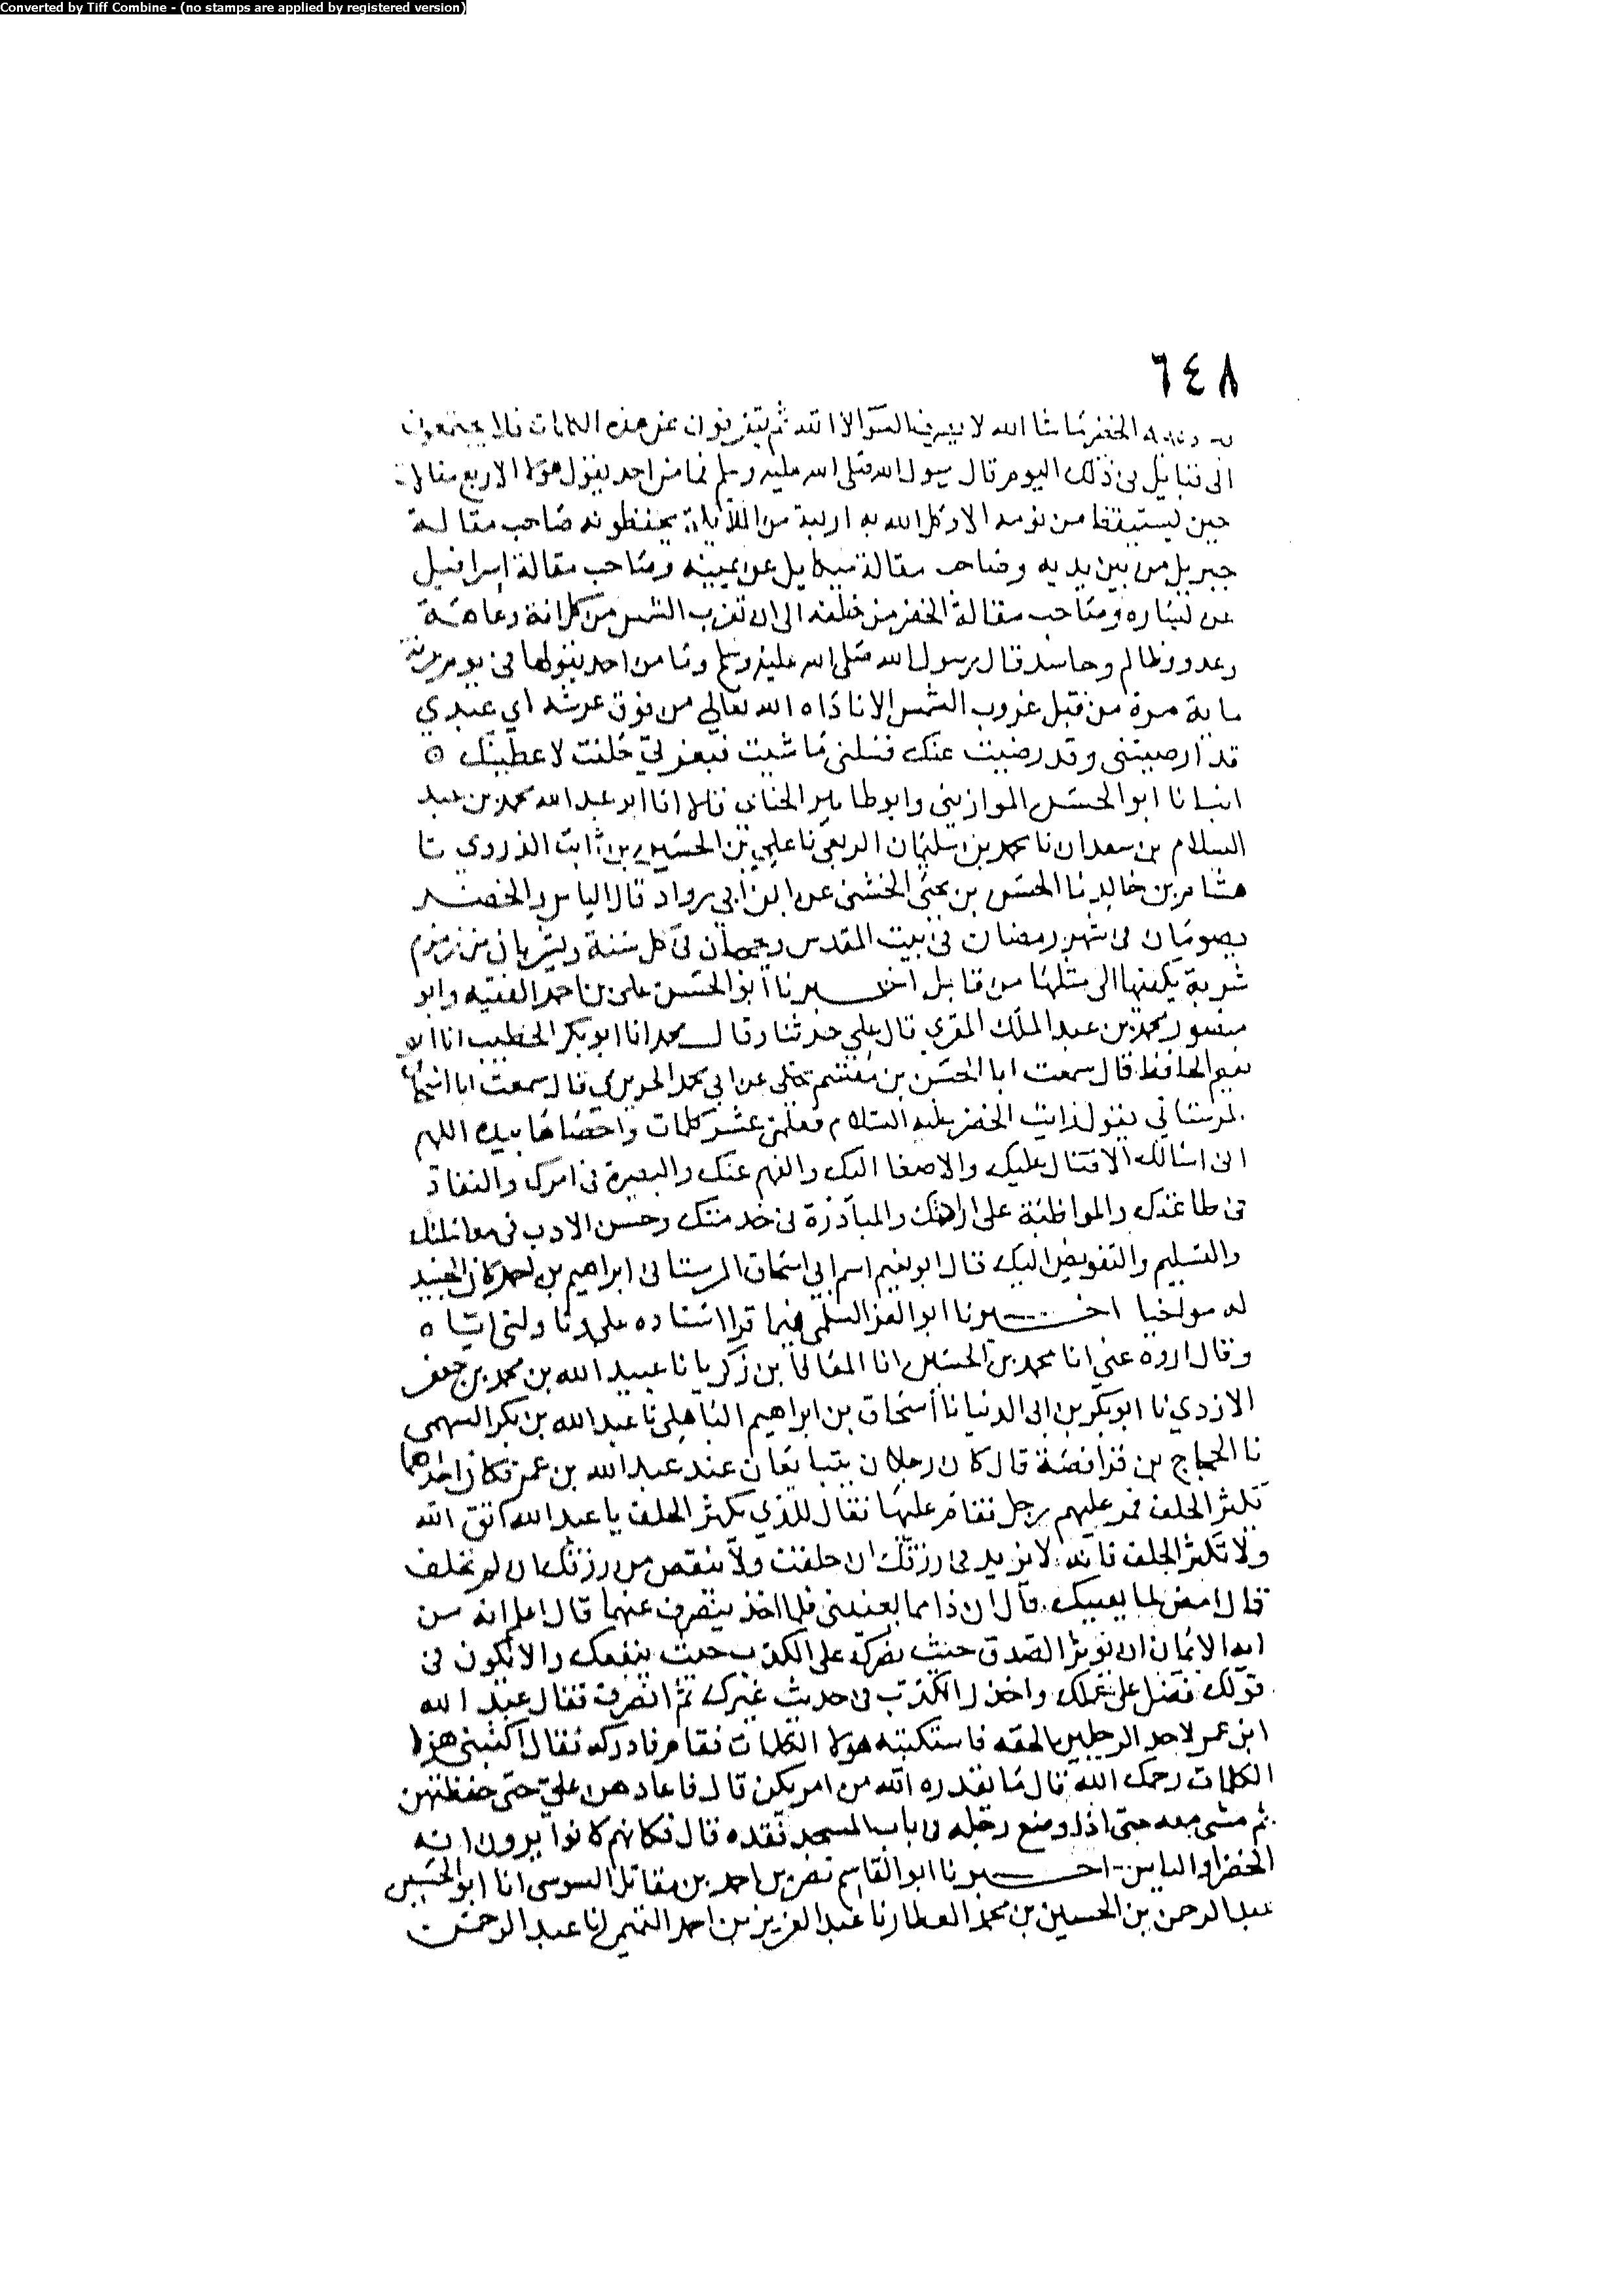 Converted by Tiff Combine - (no stamps are applied by registered version)
٦٤٨
الخضر ما شا الله لا يصرف السوّ الا الله ثم يتفرقون عن هذه الكلمات فلا يجتمعون
الى قابل فى ذلك اليوم قال رسول الله صلى الله عليه وسلم فما من احد يقول هولا الاربع مقالات
حين يستيقظ من نومه الا وكل الله به اربعة من الملائكة يحفظونه صاحب مقالة
جبريل من بين يديه وصاحب مقالة ميكايل عن يمينه وصاحب مقالة إسرافيل
عن يساره وصاحب مقالة الخضر من خلفه الى ان تغرب الشمس من كل افة وعاهة
وعدو وظالم وحاسد قال رسول الله صلى الله عليه وسلم وما من احد يقولها فى يوم عرفة
ماية مرة من قبل غروب الشمس الا ناداه الله تعالى من فوق عرشه أي عبدي
قد ارضيتنى وقد رضيت عنك فسلنى ما شيت فبعزتي حلفت لاعطينك ه
انبانا ابو الحسن الموازينى وابو طاهر الحناى قالا انا ابو عبد الله محمد بن عبد
السلام بن سعدان نا محمد بن سليمان الربعى نا علي بن الحسين بن ثابت الذروي نا
هشام بن خالد نا الحسن بن يحيى الخشنى عن ابن أبي رواد قال الياس والخضر
يصومان فى شهر رمضان فى بيت المقدس ويحجان فى كل سنة ويشربان من زمزم
شربة يكفيها الى مثلها من قابل اخبرنا أبو الحسن على بن احمد الفقيه وابو
منصور محمد بن عبد الملك المقرى قال علي حدثنا وقال محمد انا ابو بكر الخطيب انا ابو
نعيم الحافظ قال سمعت ابا الحسن بن مقسم يحكى عن ابي محمد الحريري قال سمعت ابا اسحاق
المرستاني يقول رايت الخضر عليه السلام فعلمنى عشر كلمات واحصاها بيده اللهم
انى اسالك الاقبال عليك والاصغا اليك والفهم عنك والبصيرة فى امرك والنفاذ
فى طاعتك والمواظبة على ارادتك والمبادرة فى خدمتك وحسن الادب فى معاملتك
والتسليم والتفويض اليك قال ابو نعيم اسم ابي اسحاق المرستانى ابراهيم بن احمد كان الجنيد
له مواخيا اخبرنا ابو العز السلمى فيما قرا اسناده على وناولنى اياه
وقال اروه عني انا محمد بن الحسين انا المعافا بن زكريا نا عبيد الله بن محمد بن جعفر
الازدي نا ابو بكر بن ابى الدنيا نا أسحاق بن ابراهيم الباهلى نا عبد الله بن بكر السهمى
نا الحجاج بن فرافصة قال كان رجلان يتبايعان عند عبد الله بن عمر فكان احدهما
يكثر الحلف فمر عليهم رجل فقام عليها فقال للذي يكثر الحلف يا عبد الله اتق الله
ولا تكثر الحلف فانه لا يزيد فى رزقك ان حلفت ولا ينقص من رزقك ان لم تحلف
قال امض لما يعنيك قال ان ذا مما يعنينى فلما اخذ ينصرف عنهما قال اعلم انه من
اية الايمان ان توثر الصدق حيث يضرك على الكذب حيث ينفعك والا يكون فى
قولك فضل على عملك واحذر الكذب فى حديث غيرك ثم انصرف فقال عبد الله
ابن عمر لاحد الرجلين الحقه فاستكتبه هولا الكلمات فقام فادركه فقال اكتبنى هولا
الكلمات رحمك الله قال ما يقدره الله من امر يكن قال فاعادهن علي حتى حفظتهن
ثم مشى معه حتى اذا وضع رجله فى باب المسجد فقده قال فكانهم كانوا يرون انه
الخضر او الياس اخبرنا ابو القاسم نصر بن احمد بن مقاتل السوسى انا ابو الحسين
عبد الرحمن بن الحسين بن محمد العطار نا عبد العزيز بن احمد التميمى انا عبد الرحمن